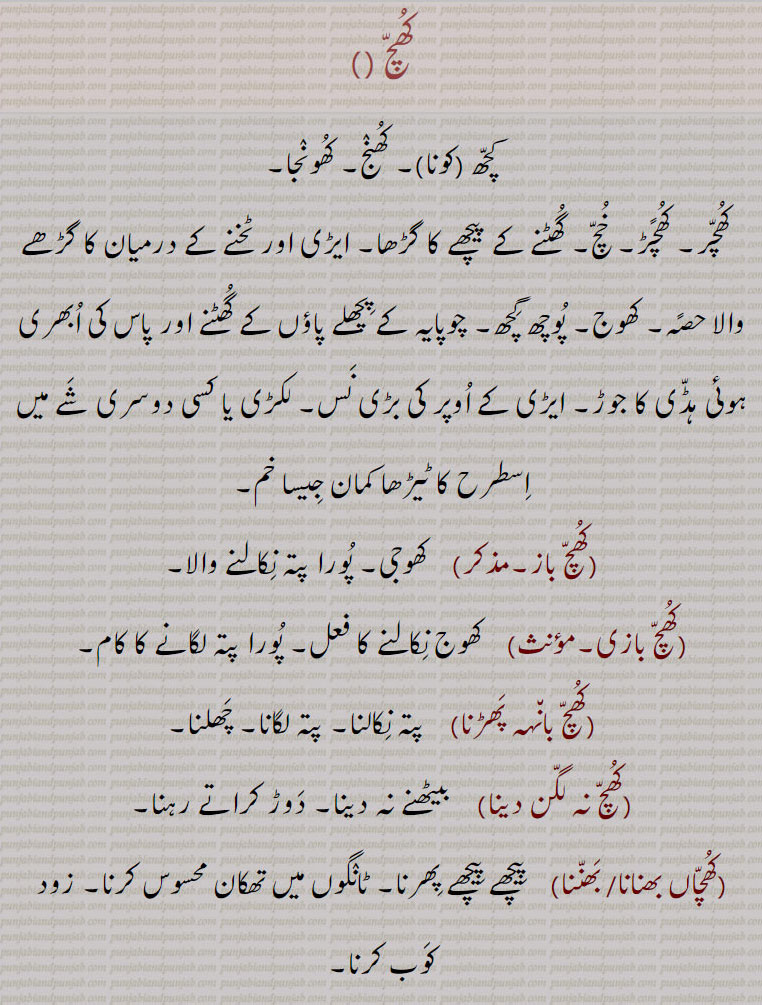 کُھچّ ()
کچّھ (کونا)۔ کُھنْج۔ کُھونْجا۔
کُھچّر۔ کُھچّڑ۔ خُچّ۔ گُھٹنے کے پیچھے کا گڑھا۔ ایڑی اور ٹخنے کے درمیان کا گڑھے
والا حصّہ۔ کھوج۔ پُوچھ گچھ۔ چوپایہ کے پچھلے پاؤں کے گُھٹنے اور پاس کی اُبھری
ہوئی ہڈّی کا جوڑ۔ ایڑی کے اُوپر کی بڑی نَس۔ لکڑی یا کسی دوسری شَے میں
اِسطرح کا ٹیڑھا کمان جیسا خم۔
(کُھچّ باز۔مذکر) کھوجی۔ پُورا پتہ نِکالنے والا۔
(کُھچّ بازی۔مؤنث) کھوج نِکالنے کا فعل۔ پُورا پتہ لگانے کا کام۔
(کُھچّ بانہہ پَھڑنا) پتہ نِکالنا۔ پتہ لگانا۔ چَھلنا۔
(کُھچّ نہ لگّن دینا) بیٹھنے نہ دینا۔ دَوڑ کراتے رہنا۔
(کُھچّاں بھنانا/ بَھنّنا) پیچھے پیچھے پِھرنا۔ ٹانگوں میں تھکان محسوس کرنا۔ زود
کَوب کرنا۔